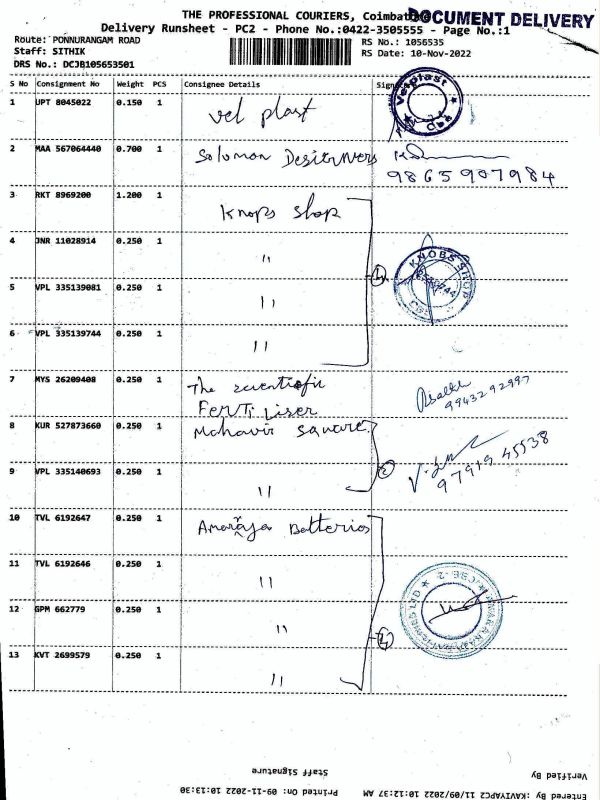 THE PROFESSIONAL COURIERS, Coimbatore
DOCUMENT DELIVERY
Delivery Runsheet - PC2 - Phone No.:0422-3505555 - Page No.:1
Route: PONNURANGAM ROAD
RS No.: 1056535
Staff: SITHIK
RS Date: 10-Nov-2022
DRS No.: DCJB105653501
S No Consignment No Weight PCS Consignee Details
1 UPT 8045022 0.150 1 vel plast
Velplast
2 MAA 567064440 0.700 1 Solomon
9865907984
3 RKT 8969200 1.200 1 Knops shop
4 JNR 11028914 0.250 1 "
KNOBS SHOP
5 VPL 335139081 0.250 1 "
6 VPL 335139744 0.250 1 "
7 MYS 26209408 0.250 1 The
FERTiLiser
9943292997
8 KUR 527873660 0.250 1 Mahavir Square
9 VPL 335140693 0.250 1 "
97919 45538
10 TVL 6192647 0.250 1 Amaraja Batteries
11 TVL 6192646 0.250 1 "
12 GPM 662779 0.250 1 "
13 KVT 2699579 0.250 1 "
Staff Signature
Verified By
Printed On: 09-11-2022 10:13:10
Entered By :KAVIYAPC2 11/09/2022 10:12:37 AM